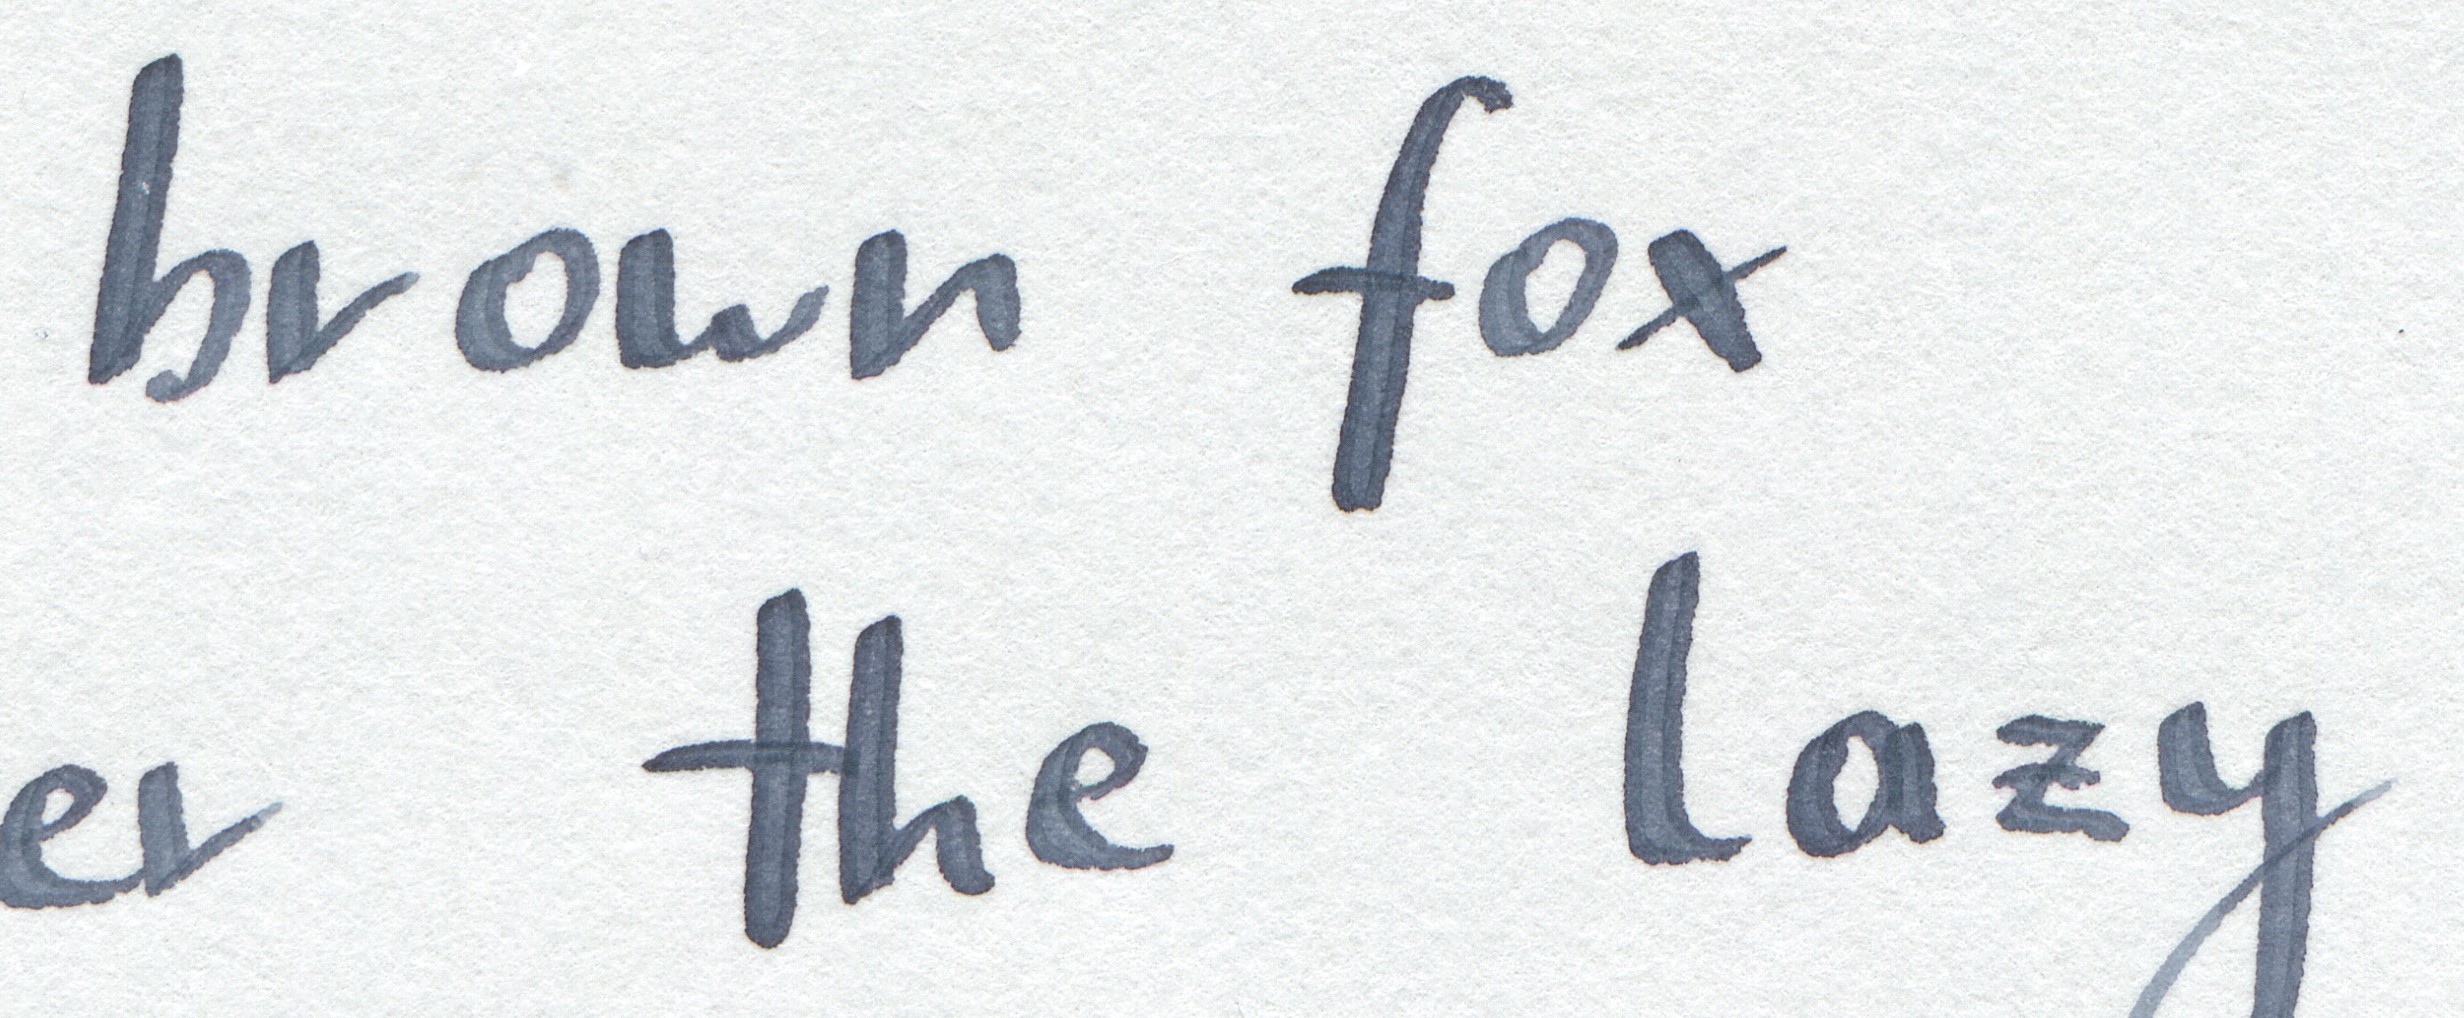 brown fox
er the lazy